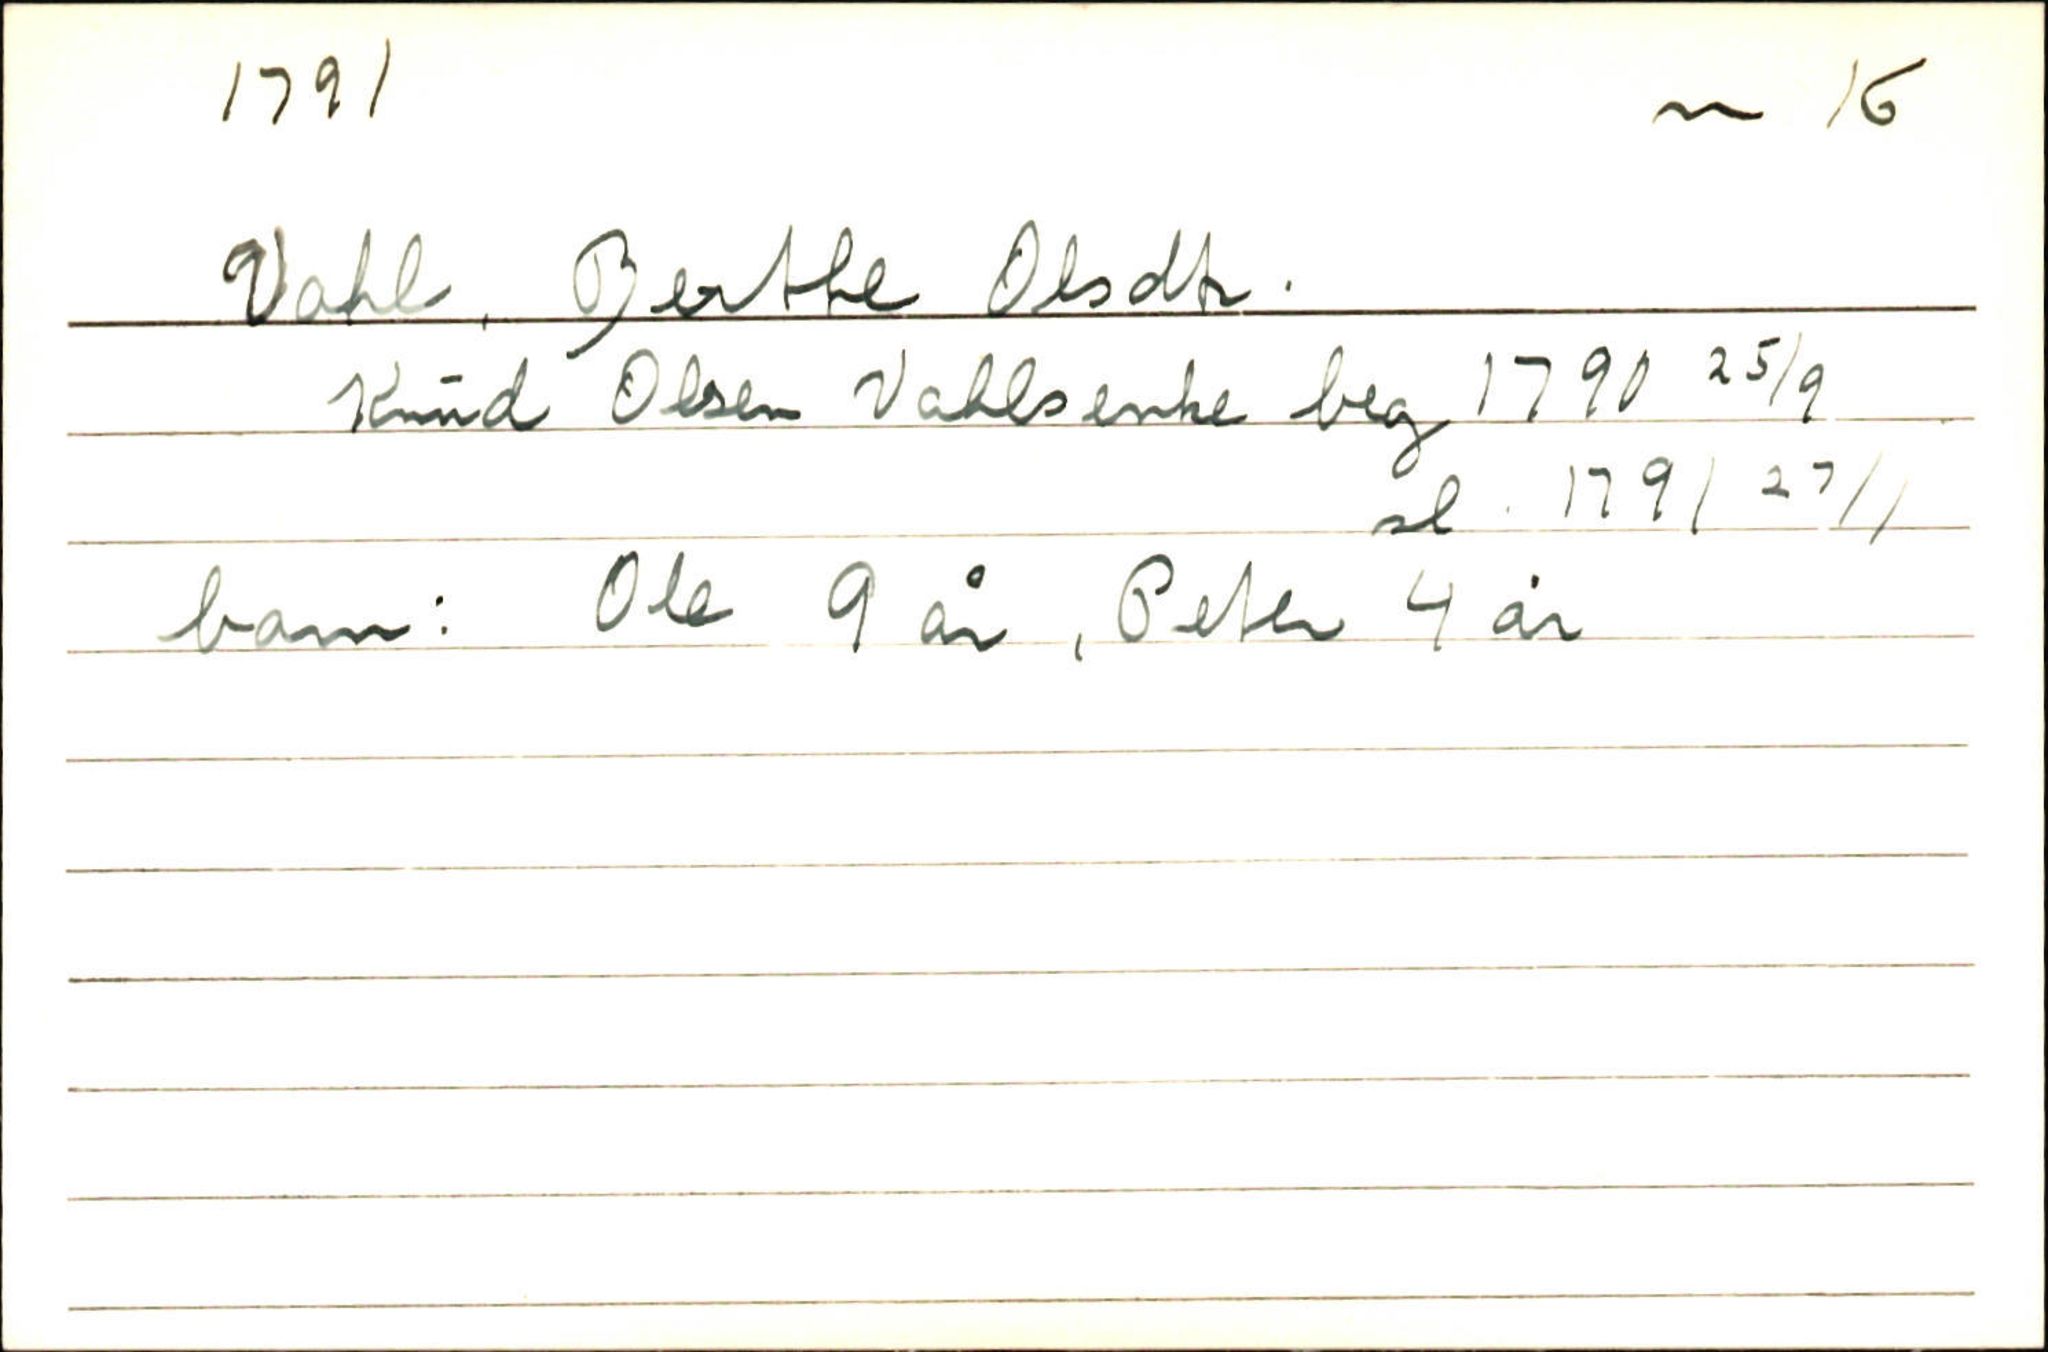 1791 n 16
Vahl, Berthe Olsdtr.
Knud Olsen Vahlsenke beg 1790 25/9
sl. 1791 27/1
barn: Ole 9 år, Peter 4 år